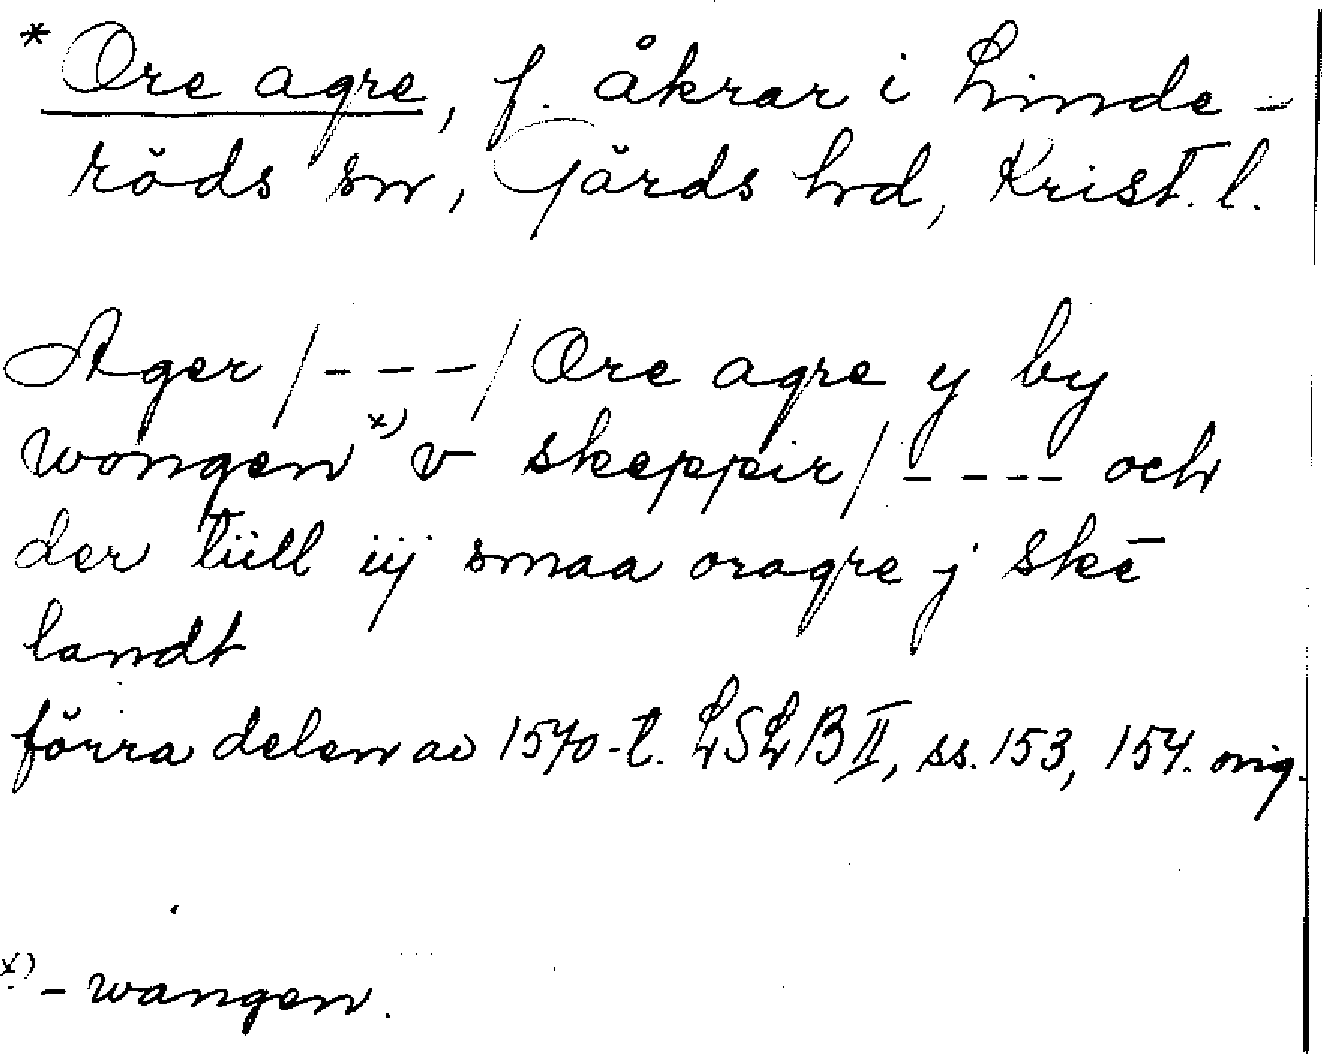 * Ore agre, f. åkrar i Linde-
röds sn, Gärds hd, Krist. l.
Ager /- - -/ Ore agre y by
wongen x) v skeppir /- - - - och
der tiill iij smaa oragre j skē
landt
förra delen av 1570-t. LSLB II, ss. 153, 154. orig.
x) - wangen.